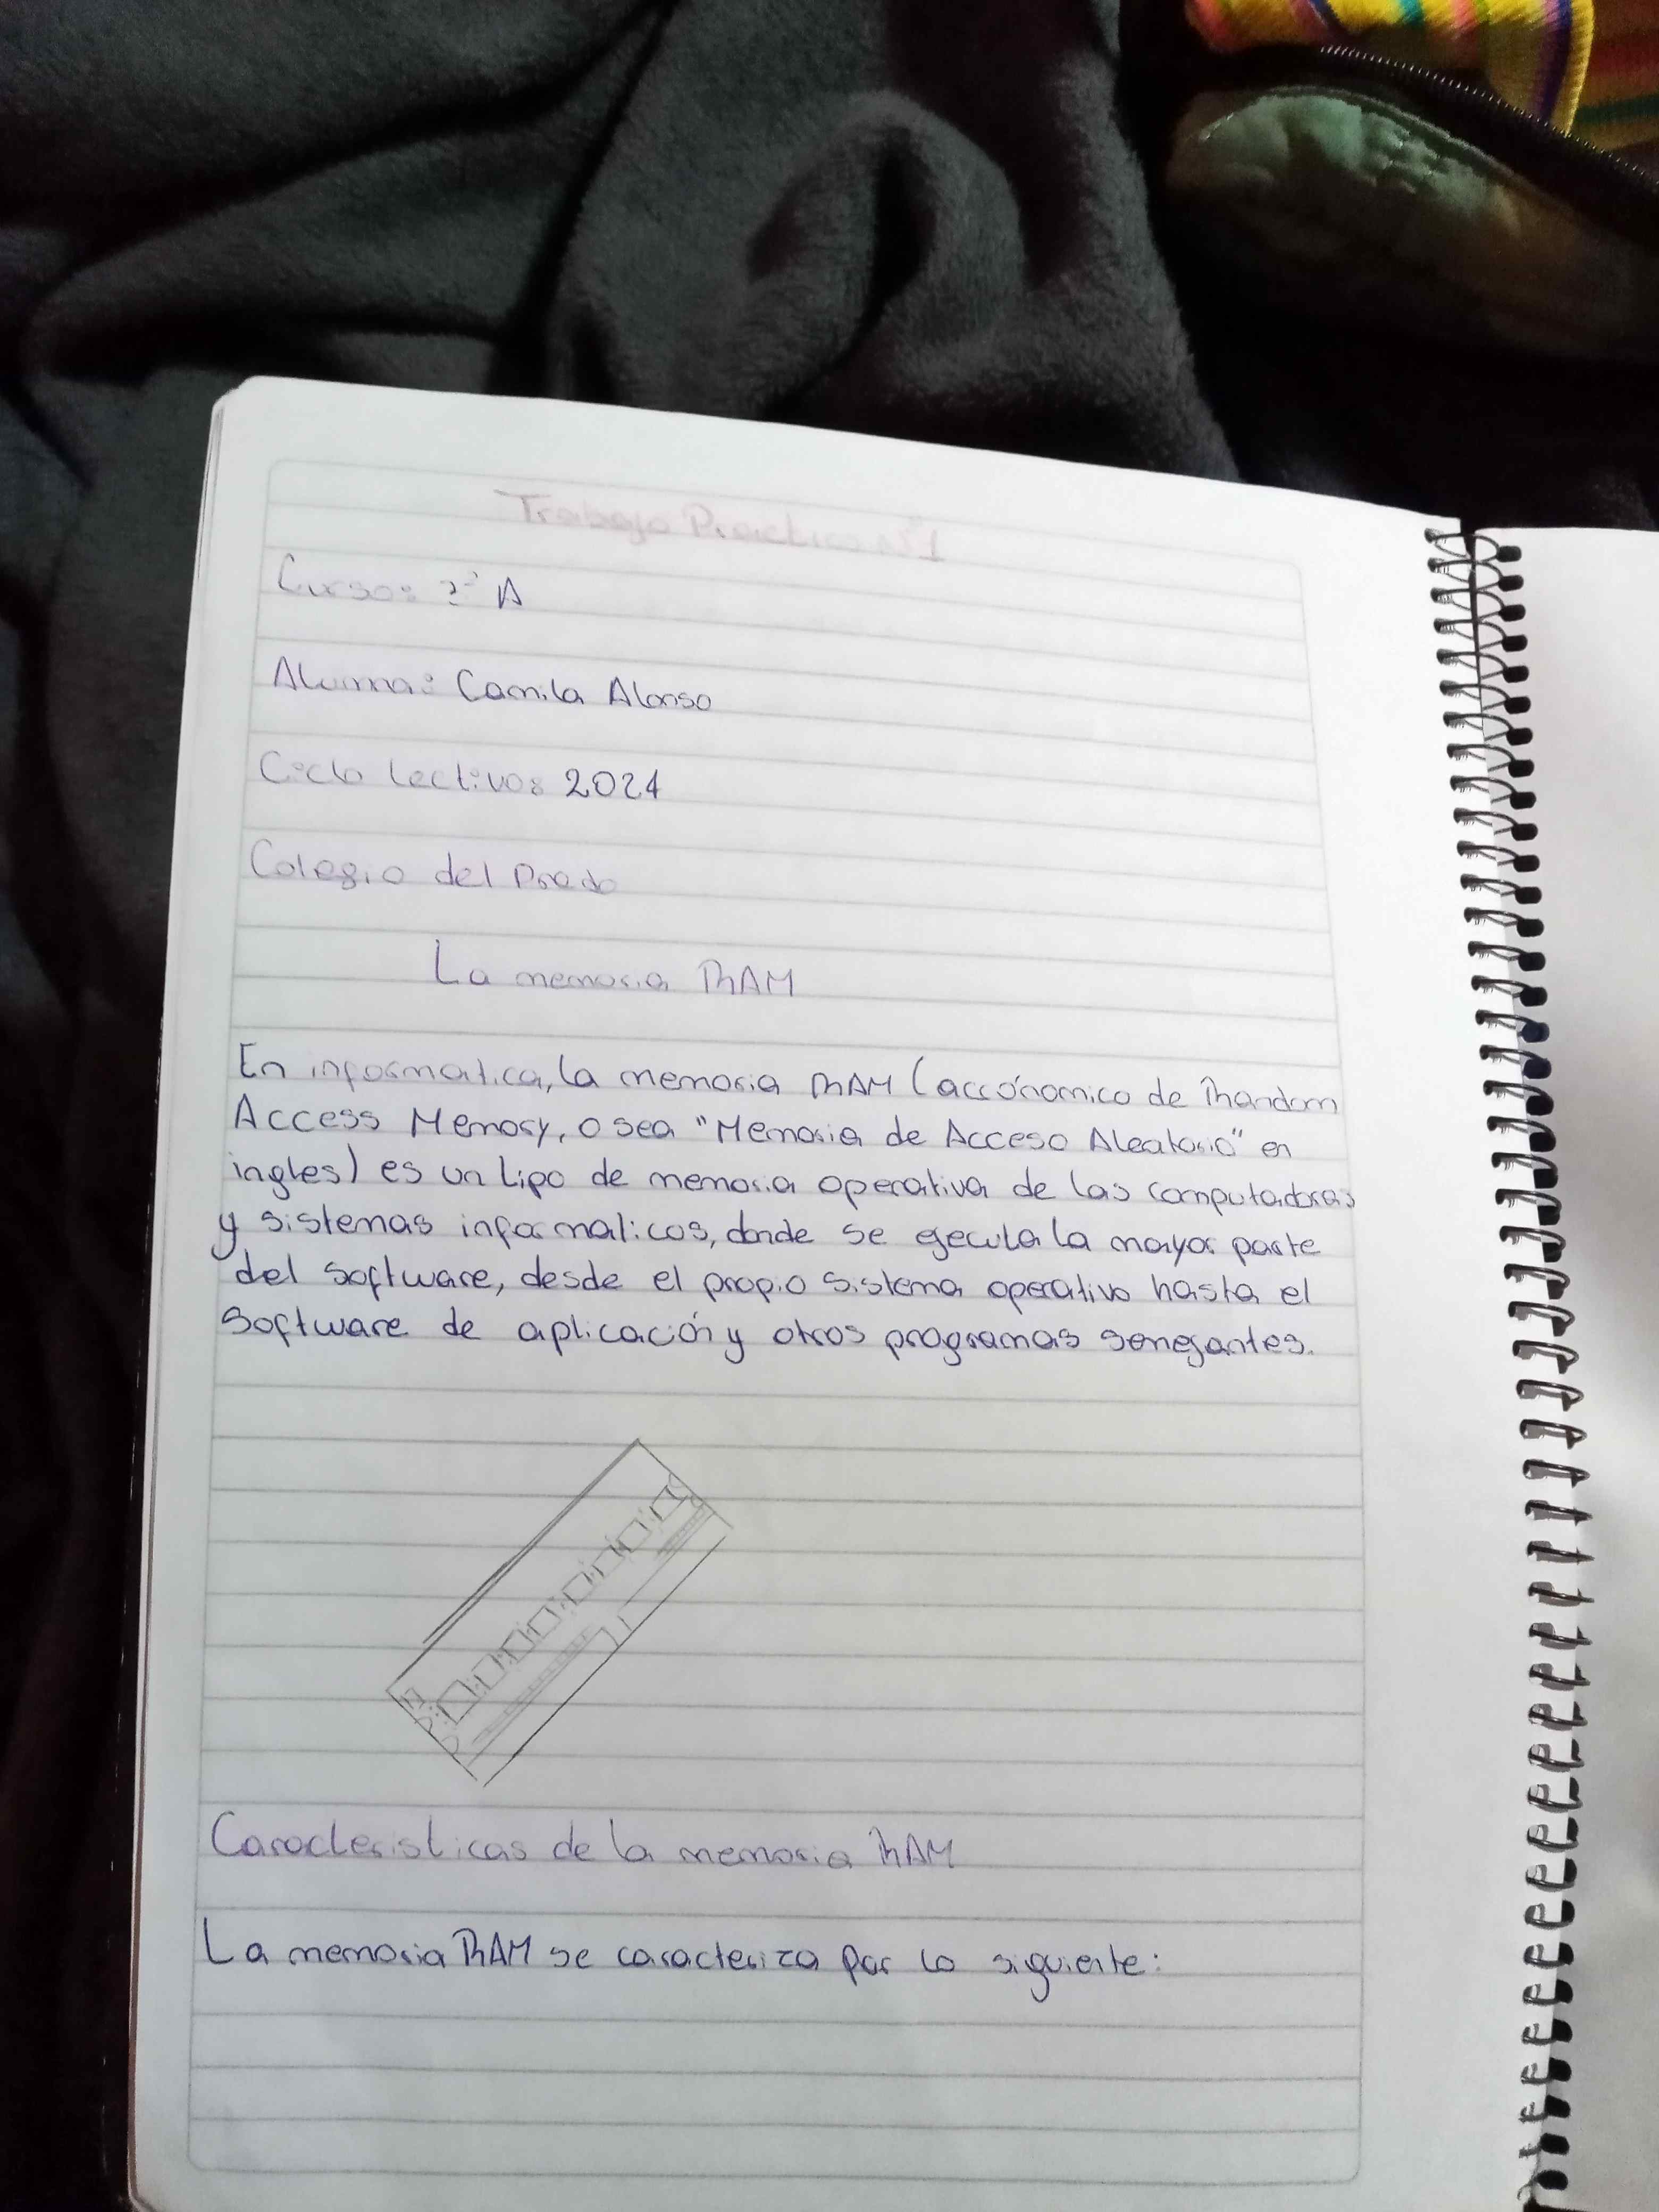 Trabajo Practico N°1
Curso: 2° A
Alumna: Camila Alonso
Ciclo lectivo: 2021
Colegio del Prado
La memoria RAM
En informatica, la memoria RAM (accónomico de Random
Access Memory, o sea "Memoria de Acceso Aleatorio" en
ingles) es un tipo de memoria operativa de las computadoras
y sistemas informaticos, donde se ejecuta la mayor parte
del software, desde el propio sistema operativo hasta el
Software de aplicación y otros programas semejantes.
Caracteristicas de la memoria RAM
La memoria RAM se caracteriza por lo siguiente: